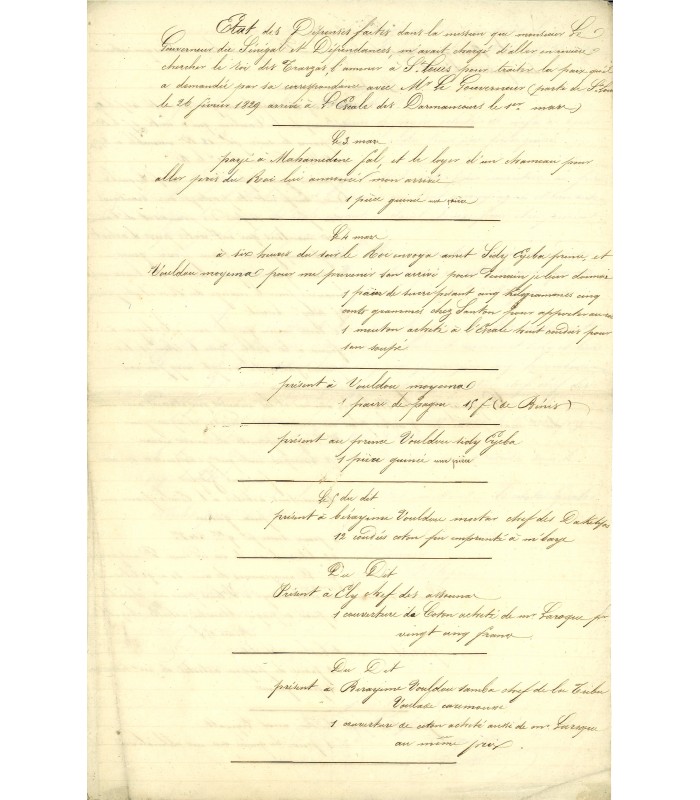 Etat des Dépenses faites dans la mission que monsieur Le
Gouverneur du Sénégal et Dépendances, m'avait chargé d'aller en rivière
chercher le roi des Trarzas, l'amener à St Louis pour traiter la paix qu'il
a demandée par sa correspondance avec Mr Le Gouverneur (parti de St Louis
le 26 février 1829 arrivé à L'Escale des Darmancours le 1er mars)
Le 3 mars
payé à Mahamedene fal, et le loyer d'un chameau pour
aller près du Roi lui annoncer mon arrivée
1 pièce guinée une pièce
Le 4 mars
à six heures du soir le Roi envoya Sidy Eyeba prince, et
Vouldou moyema pour me prévenir son arrivé pour demain je leur donnai
1 pain de sucre pesant cinq Kilogrammes cinq
cents grammes chez pour apporter au
1 mouton acheté à l'Escale huit coudées pour
son soupé
présent à Vouldou moyema
1 paire de pagne 15 f (de Bénis)
présent au prince Vouldou Sidy Eyeba
1 pièce guinée une pièce
Le 5 du dit
présent à birayime Vouldou moctar chef des
12 coudées coton emprunté à m'baye
Du Dit
Présent à Ely chef des assouna
1 couverture de Coton acheté de mr Laroque pr
vingt cinq francs
Du Dit
présent à Birayime Vouldou samba chef de la Tribu
1 couverture de coton acheté aussi de mr Laroque
au même prix.